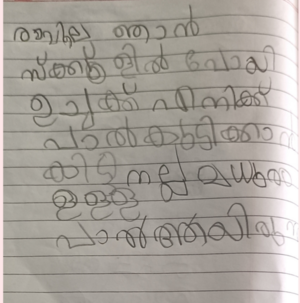 രാവിലെ ഞാൻ
സ്കൂളിൽ പോയി
ഉച്ചക്ക് എനിക്ക്
പാൽ കുടിക്കാൻ
കിട്ടി നല്ല മധുരം
ഉള്ള
പാൽ ആയിരു